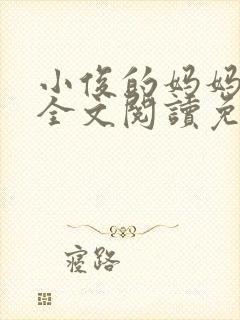 小俊的妈妈
全文閱讀免
寝路